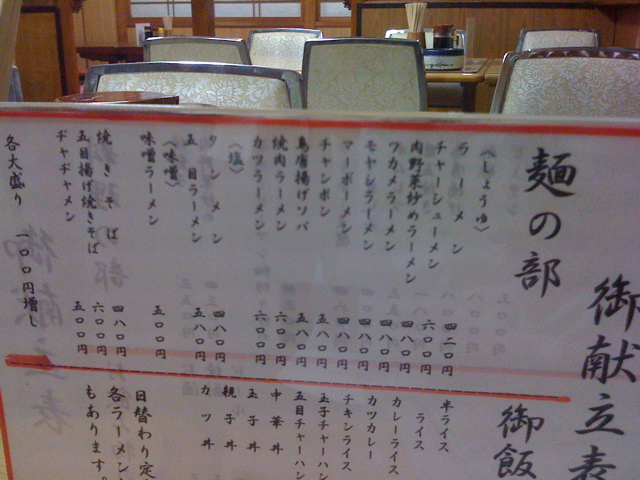 御献立表
麺の部
〈しょうゆ〉
ラーメン 四二〇円
チャーシューメン 六〇〇円
肉野菜炒めラーメン 四八〇円
ワカメラーメン 四八〇円
モヤシラーメン 四八〇円
マーボーメン 四八〇円
チャンポン 五八〇円
鳥唐揚げソバ 五八〇円
焼肉ラーメン 六〇〇円
カツラーメン 六〇〇円
〈塩〉
タンメン 四八〇円
五目ラーメン 五八〇円
〈味噌〉
味噌ラーメン 五〇〇円
焼きそば 四八〇円
五目揚げ焼きそば 六〇〇円
ヂャヂャメン 五〇〇円
各大盛り 一〇〇円増し
御飯
半ライス
ライス
カレーライス
カツカレー
チキンライス
玉子チャーハン
五目チャーハン
中華丼
玉子丼
親子丼
カツ丼
日替わり定
各ラーメン
もあります。